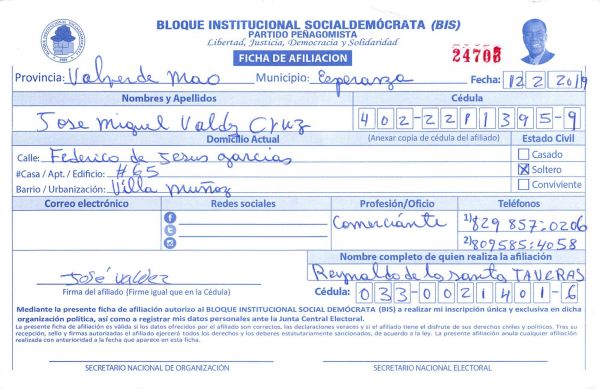 BLOQUE INSTITUCIONAL SOCIALDEMÓCRATA (BIS)
PARTIDO PEÑAGOMISTA
Libertad, Justicia, Democracia y Solidaridad
FICHA DE AFILIACION
24708
Provincia: Valverde Mao Municipio: Esperanza Fecha: 12 2 2019
Nombres y Apellidos Cédula
Jose Miguel Valdez Cruz 402-2211395-9
Domicilio Actual (Anexar copia de cédula del afiliado) Estado Civil
Calle: Federico de Jesus garcias Casado
#Casa / Apt. / Edificio: #65 Soltero
Barrio / Urbanización: Villa Muñoz Conviviente
Correo electrónico Redes sociales Profesión/Oficio Teléfonos
Comerciánte 1) 829 857-0206
2) 809585-4058
Nombre completo de quien realiza la afiliación
José Valdez Reynaldo de lo santo TAVERAS
Firma del afiliado (Firme igual que en la Cédula) Cédula: 033-0021401-6
Mediante la presente ficha de afiliación autorizo al BLOQUE INSTITUCIONAL SOCIAL DEMÓCRATA (BIS) a realizar mi inscripción única y exclusiva en dicha
organización política, así como a registrar mis datos personales ante la Junta Central Electoral.
La presente ficha de afiliación es válida si los datos ofrecidos por el afiliado son correctos, las declaraciones veraces y si el afiliado tiene el disfrute de sus derechos civiles y políticos. Tras su
recepción, sello y firmas autorizadas el afiliado ejercerá todos los derechos y los deberes estatutariamente sancionados, de acuerdo a la ley. La presente afiliación anula cualquier afiliación
realizada con anterioridad a la fecha que aparece en esta ficha.
SECRETARIO NACIONAL DE ORGANIZACIÓN SECRETARIO NACIONAL ELECTORAL